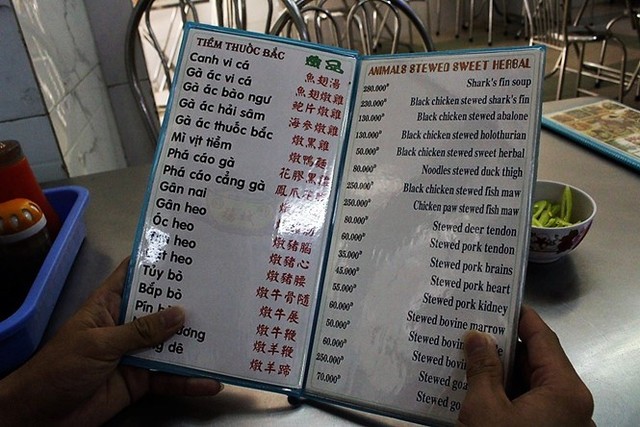 TIỀM THUỐC BẮC
Canh vi cá 魚翅湯
Gà ác vi cá 魚翅燉雞
Gà ác bào ngư 鮑片燉雞
Gà ác hải sâm 海參燉雞
Gà ác thuốc bắc 燉黑雞
Mì vịt tiềm 燉鴨麵
Phá cáo gà 花膠黑雞
Phá cáo cẳng gà 鳳爪花
Gân nai 燉
Gân heo 燉豬
Óc heo 燉豬腦
heo 燉豬心
heo 燉豬腰
Tủy bò 燉牛骨髓
Bắp bò 燉牛展
Pín 燉牛鞭
燉羊鞭
dê 燉羊蹄
ANIMALS STEWED SWEET HERBAL
280.000đ Shark's fin soup
230.000đ Black chicken stewed shark's fin
130.000đ Black chicken stewed abalone
130.000đ Black chicken stewed holothurian
50.000đ Black chicken stewed sweet herbal
80.000đ Noodles stewed duck thigh
250.000đ Black chicken stewed fish maw
250.000đ Chicken paw stewed fish maw
80.000đ Stewed deer tendon
60.000đ Stewed pork tendon
35.000đ Stewed pork brains
45.000đ Stewed pork heart
55.000đ Stewed pork kidney
60.000đ Stewed bovine marrow
50.000đ Stewed bovine
60.000đ Stewed bovin
250.000đ Stewed goa
70.000đ Stewed go